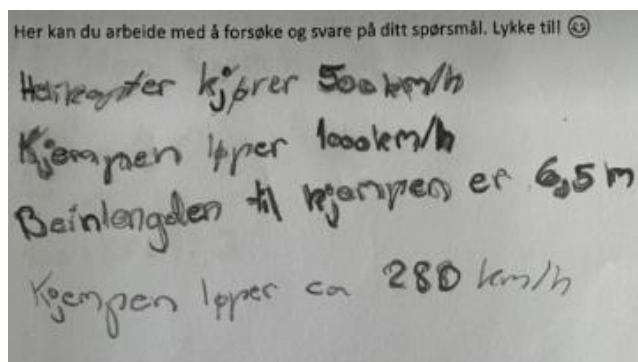 Her kan du arbeide med å forsøke og svare på ditt spørsmål. Lykke till ☺
Helikopter kjører 500 km/h
Kjempen løper 1000 km/h
Beinlengden til kjempen er 6,5 m
Kjempen løper ca 280 km/h